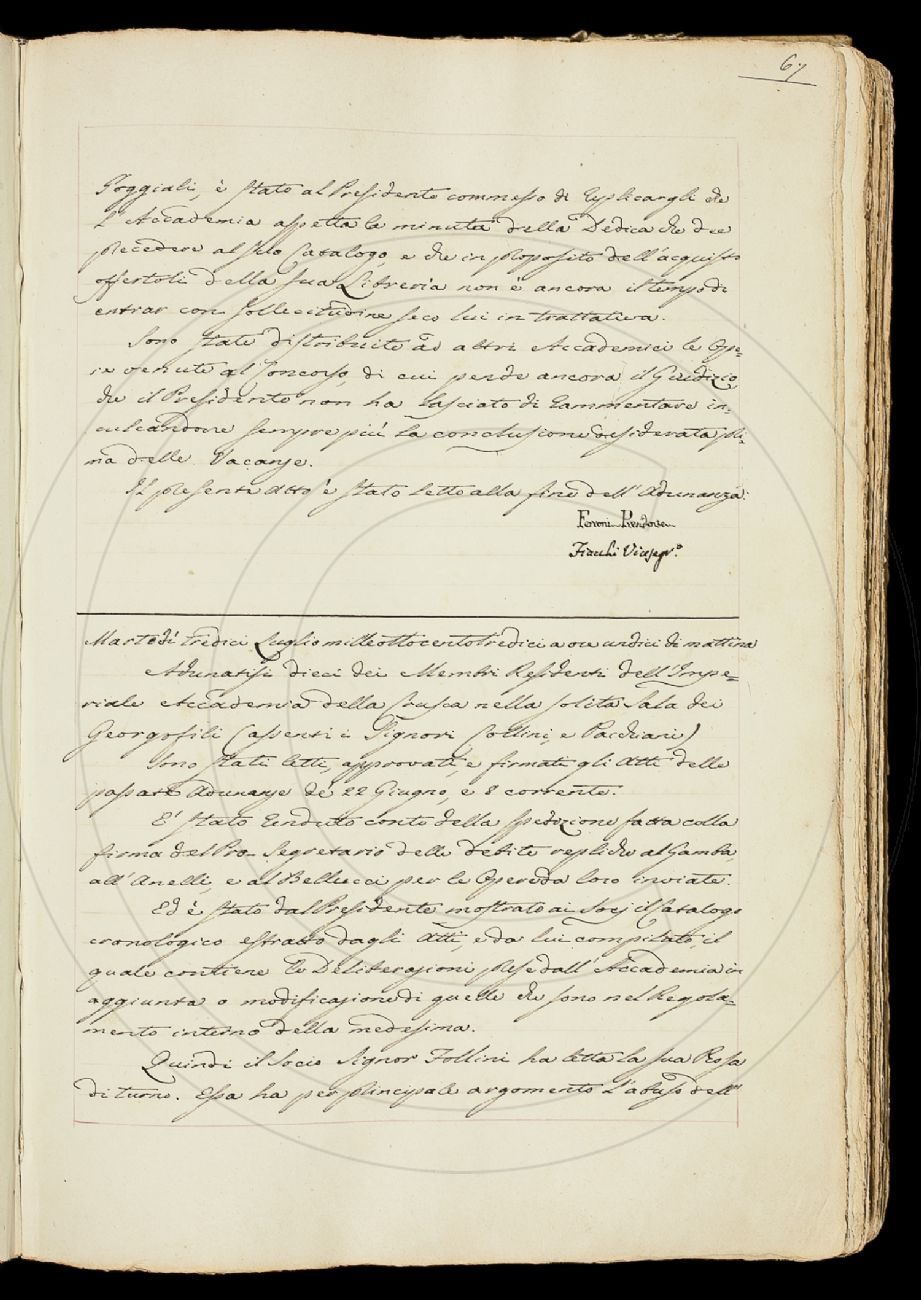 67
Poggiali, è stato al Presidente commesso di replicargli che
l'Accademia aspetta la minuta della Dedica che dee
precedere al suo Catalogo, e che in proposito dell'acquisto
offertoli della sua Libreria non è ancora il tempo di
entrar con sollecitudine seco lui in trattativa.
Sono state distribuite ad altri Accademici le Ope-
re venute al Concorso, di cui pende ancora il Giudizio,
che il Presidente non ha lasciato di rammentare in-
culcandone sempre più la conclusione desiderata pri-
ma delle Vacanze.
Il presente Atto è stato letto alla fine dell'Adunanza.
Ferroni Presidente
Fiacchi Vicesegr.º
Martedì tredici Luglio mille ottocento tredici a ore undici di mattina
Adunatisi dieci dei Membri Residenti dell'Impe-
riale Accademia della Crusca nella solita Sala dei
Georgofili (assenti i Signori Collini, e Pacchiani)
Sono stati letti, approvati, e firmati gli Atti delle
passate Adunanze de' 22 Giugno, e 8 corrente.
E' stato renduto conto della spedizione fatta colla
firma del Pro-Segretario delle debite repliche al Gamba,
all'Anelli, e al Bellucci per le Opere da loro inviate.
Ed è stato dal Presidente mostrato ai Socj il Catalogo
cronologico estratto dagli Atti, e da lui compilato, il
quale contiene le Deliberazioni prese dall'Accademia in
aggiunta o modificazione di quelle che sono nel Regola-
mento interno della medesima.
Quindi il Socio Signor Follini ha letta la sua Prosa
di turno. Essa ha per principale argomento l'abuso dell'